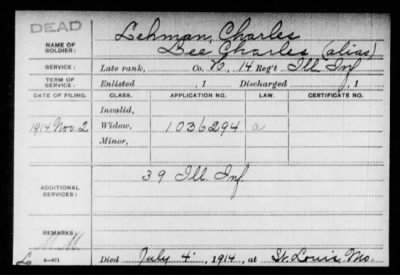 DEAD
NAME OF SOLDIER: Lehman, Charles
Lee Charles (alias)
SERVICE: Late rank, Co. K, 14 Reg't Ill. Inf
TERM OF SERVICE: Enlisted , 1 Discharged , 1
DATE OF FILING. CLASS. APPLICATION NO. LAW. CERTIFICATE NO.
Invalid,
1914 Nov. 2 Widow, 1036294 a
Minor,
ADDITIONAL SERVICES: 39 Ill. Inf
REMARKS:
Died July 4, 1914, at St. Louis, Mo.